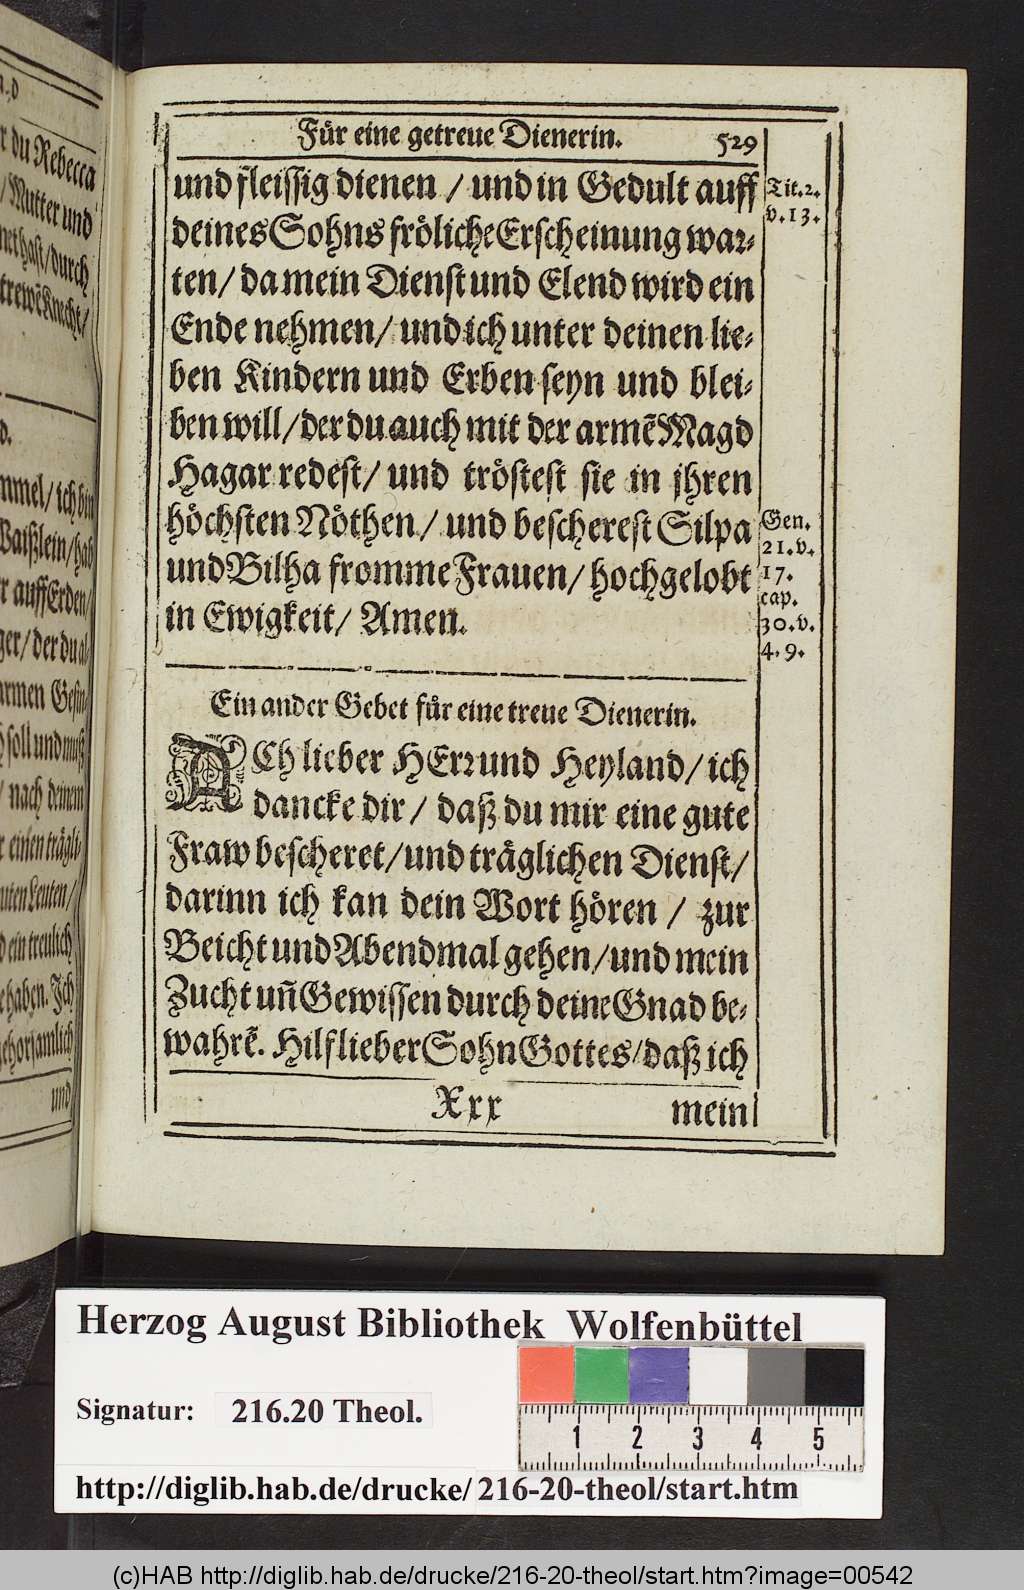 r du Rebecca
/Mutter und
hast/durch
trewẽ Knecht/
d.
mmel/ ich bin
Waißlein/hab
r auff Erden/
ger/ der du al-
armen Gesin-
soll und muß
/ nach deinem
r einen trägli-
uten Leuten/
d ein treulich
e haben. Ich
gehorsamlich
und
Für eine getreue Dienerin. 529
und fleissig dienen / und in Gedult auff
deines Sohns fröliche Erscheinung war-
ten/ da mein Dienst und Elend wird ein
Ende nehmen/ und ich unter deinen lie-
ben Kindern und Erben seyn und blei-
ben will/der du auch mit der armẽ Magd
Hagar redest/ und tröstest sie in jhren
höchsten Nöthen/ und bescherest Silpa
und Bilha fromme Frauen/ hochgelobt
in Ewigkeit/ Amen.
Tit.2.
v.13.
Gen.
21.v.
17.
cap.
30.v.
4.9.
Ein ander Gebet für eine treue Dienerin.
ACh lieber HErr und Heyland/ ich
dancke dir/ daß du mir eine gute
Fraw bescheret/und träglichen Dienst/
darinn ich kan dein Wort hören / zur
Beicht und Abendmal gehen/und mein
Zucht uñ Gewissen durch deine Gnad be-
wahrẽ. Hilf lieber Sohn Gottes/daß ich
Xxx mein
Herzog August Bibliothek Wolfenbüttel
Signatur: 216.20 Theol.
1 2 3 4 5
http://diglib.hab.de/drucke/ 216-20-theol/start.htm
(c)HAB http://diglib.hab.de/drucke/216-20-theol/start.htm?image=00542